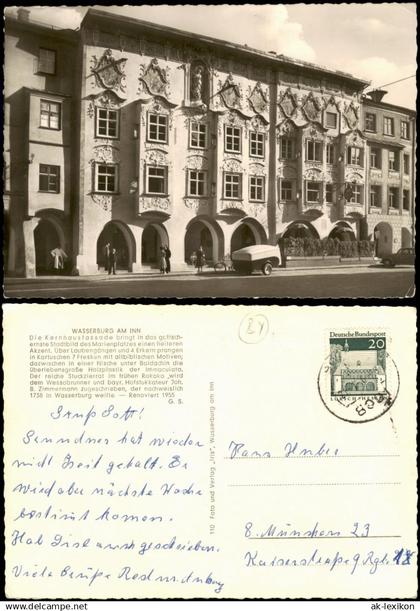 WASSERBURG AM INN
Die Kernhausfassade bringt in das gotisch-
ernste Stadtbild des Marienplatzes einen heiteren
Akzent. Über Laubengängen und 4 Erkern prangen
in Kartuschen 7 Fresken mit altbiblischen Motiven,
dazwischen in einer Nische unter Baldachin die
überlebensgroße Holzplastik der Immaculata,
der reiche Stuckzierat im frühen Rokoko, wird
dem Wessobrunner und bayr. Hofstukkateur Joh.
B. Zimmermann zugeschrieben, der nachweislich
1738 in Wasserburg weilte — Renoviert 1955
G. S.
Grüß Gott!
hat wieder
nicht Zeit gehabt. Er
wird aber nächste Woche
bestimmt kommen.
Hab geschrieben.
Viele Grüße
110 Foto und Verlag „Iris", Wasserburg am Inn
Deutsche Bundespost
20
Hans Huber
8. München 23
Kaiserstraße 9
© ak-lexikon.com